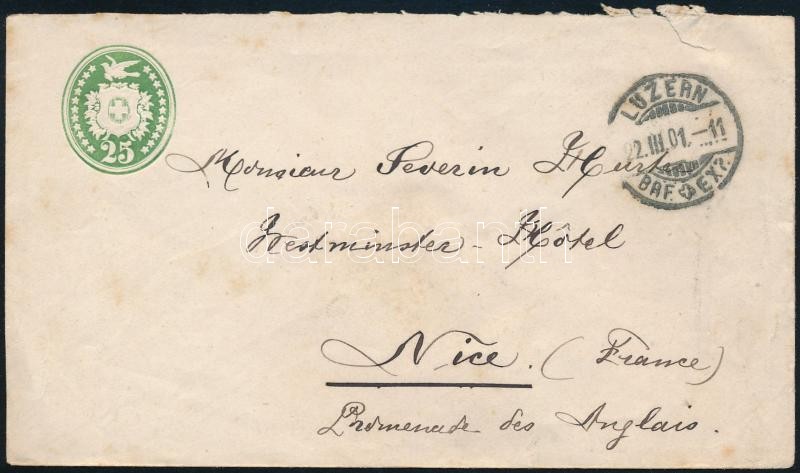 25
LUZERN
22.III.01.–11
BRF. EXP.
Monsieur Severin
Westminster - Hôtel
Nice. (France)
Promenade des Anglais.
darabanth